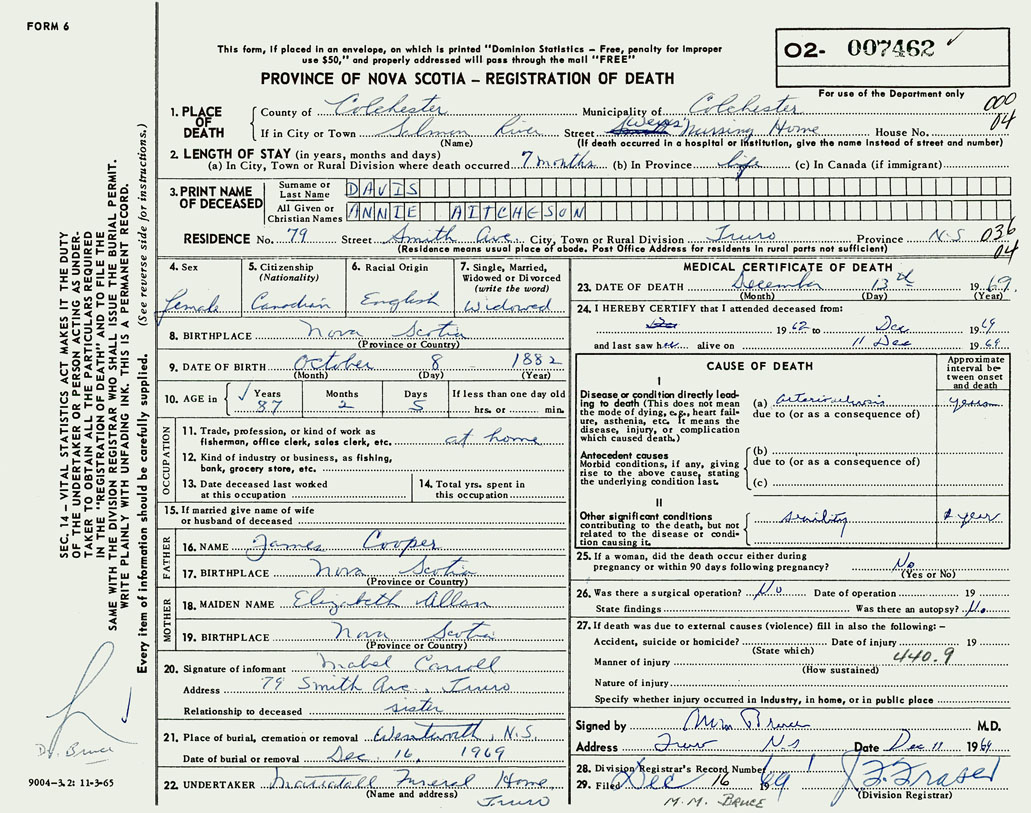 FORM 6
This form, if placed in an envelope, on which is printed "Dominion Statistics – Free, penalty for improper
use $50," and properly addressed will pass through the mail "FREE"
PROVINCE OF NOVA SCOTIA – REGISTRATION OF DEATH
02- 007462 ✓
For use of the Department only
000
04
1. PLACE OF DEATH
County of Colchester Municipality of Colchester
If in City or Town Salmon River Street Nursing Home House No.
(Name) (If death occurred in a hospital or institution, give the name instead of street and number)
2. LENGTH OF STAY (in years, months and days)
(a) In City, Town or Rural Division where death occurred 7 months (b) In Province life (c) In Canada (if immigrant)
3. PRINT NAME OF DECEASED
Surname or Last Name DAVIS
All Given or Christian Names ANNIE AITCHESON
RESIDENCE No. 79 Street Smith Ave. City, Town or Rural Division Truro Province N.S 036
04
(Residence means usual place of abode. Post Office Address for residents in rural parts not sufficient)
4. Sex female
5. Citizenship (Nationality) Canadian
6. Racial Origin English
7. Single, Married, Widowed or Divorced (write the word) Widowed
8. BIRTHPLACE Nova Scotia
(Province or Country)
9. DATE OF BIRTH October 8 1882
(Month) (Day) (Year)
10. AGE in ✓ Years 87 Months 2 Days 5 If less than one day old hrs. or min.
OCCUPATION
11. Trade, profession, or kind of work as
fisherman, office clerk, sales clerk, etc. at home
12. Kind of industry or business, as fishing,
bank, grocery store, etc.
13. Date deceased last worked
at this occupation
14. Total yrs. spent in
this occupation
15. If married give name of wife
or husband of deceased
FATHER
16. NAME James Cooper
17. BIRTHPLACE Nova Scotia
(Province or Country)
MOTHER
18. MAIDEN NAME Elizabeth Allan
19. BIRTHPLACE Nova Scotia
(Province or Country)
20. Signature of informant Mabel Carroll
Address 79 Smith Ave., Truro
Relationship to deceased sister
21. Place of burial, cremation or removal Wentworth, N.S.
Date of burial or removal Dec. 16, 1969
22. UNDERTAKER Mattatall Funeral Home
(Name and address) Truro
MEDICAL CERTIFICATE OF DEATH
23. DATE OF DEATH December 13th 1969.
(Month) (Day) (Year)
24. I HEREBY CERTIFY that I attended deceased from:
1962 to Dec 1969
and last saw her alive on 11 Dec 1969
CAUSE OF DEATH
Approximate interval between onset and death
I
Disease or condition directly leading to death (This does not
mean the mode of dying, e.g., heart failure, asthenia, etc. It means the
disease, injury, or complication
which caused death.)
(a) arteriosclerosis years
due to (or as a consequence of)
Antecedent causes
Morbid conditions, if any, giving
rise to the above cause, stating
the underlying condition last.
(b)
due to (or as a consequence of)
(c)
II
Other significant conditions
contributing to the death, but not
related to the disease or condition causing it.
senility year
25. If a woman, did the death occur either during
pregnancy or within 90 days following pregnancy? No
(Yes or No)
26. Was there a surgical operation? No Date of operation 19
State findings Was there an autopsy? No
27. If death was due to external causes (violence) fill in also the following: –
Accident, suicide or homicide? Date of injury 19
(State which)
Manner of injury 440.9
(How sustained)
Nature of injury
Specify whether injury occurred in Industry, in home, or in public place
Signed by Bruce M.D.
Address Truro NS Date Dec 11 1969
28. Division Registrar's Record Number
29. Filed Dec 16 1969 J. F. Fraser
(Division Registrar)
M.M. BRUCE
SEC. 14 – VITAL STATISTICS ACT MAKES IT THE DUTY
OF THE UNDERTAKER OR PERSON ACTING AS UNDER-
TAKER TO OBTAIN ALL THE PARTICULARS REQUIRED
IN THE "REGISTRATION OF DEATH" AND TO FILE THE
SAME WITH THE DIVISION REGISTRAR WHO SHALL ISSUE THE BURIAL PERMIT.
WRITE PLAINLY WITH UNFADING INK. THIS IS A PERMANENT RECORD.
Every item of information should be carefully supplied. (See reverse side for instructions.)
Dr. Bruce
9004-3.2: 11-3-65